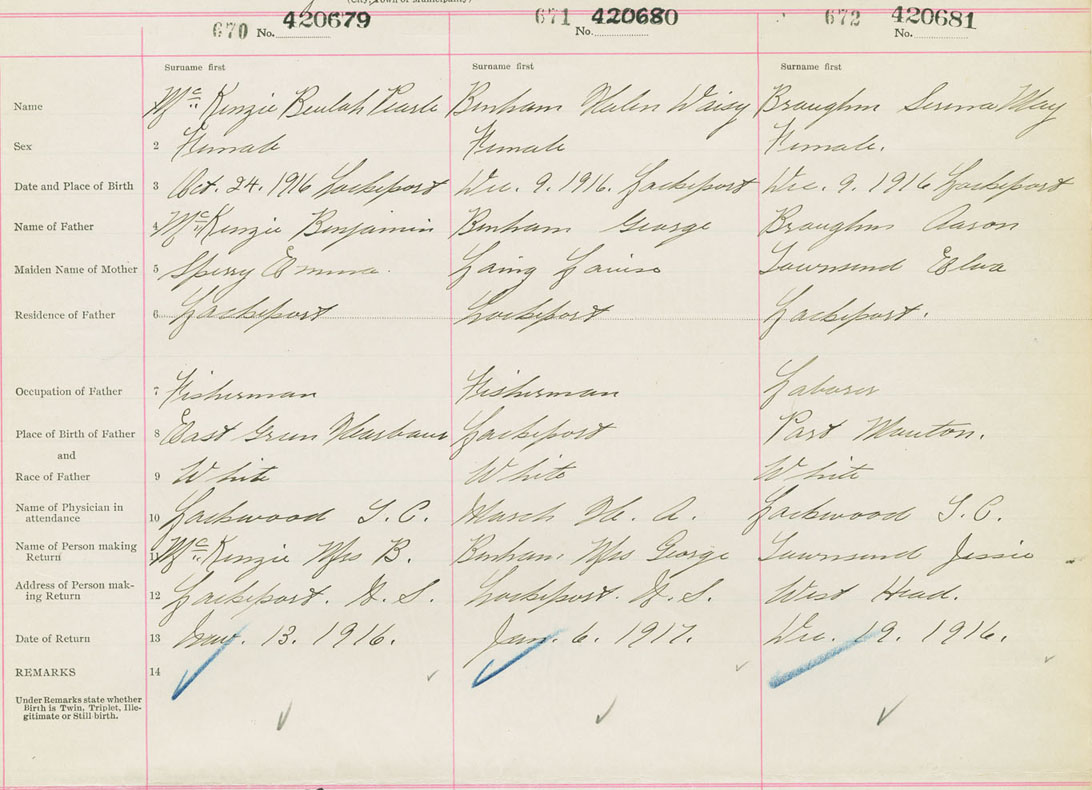 (City, Town or Municipality)
670 No. 420679 671 No. 420680 672 No. 420681
Surname first Surname first Surname first
Name McKenzie Beulah Pearle Benham Helen Daisy Broughm Serena May
Sex 2 Female Female Female.
Date and Place of Birth 3 Oct. 24. 1916 Lockeport Dec. 9. 1916. Lockeport Dec. 9. 1916 Lockeport
Name of Father 4 McKenzie Benjamin Benham George Broughm Aaron
Maiden Name of Mother 5 Sperry Emma. Laing Louise Townsend Elva
Residence of Father 6 Lockeport Lockeport Lockeport.
Occupation of Father 7 Fisherman Fisherman Laborer
Place of Birth of Father 8 East Green Harbour Lockeport Port Mouton.
and
Race of Father 9 White White White
Name of Physician in
attendance 10 Lockwood T. C. March H. A. Lockwood T. C.
Name of Person making
Return 11 McKenzie Mrs B. Benham, Mrs George Townsend Jessie
Address of Person mak-
ing Return 12 Lockeport. N. S. Lockeport. N. S. West Head.
Date of Return 13 Nov. 13. 1916. Jan. 6. 1917. Dec. 19. 1916.
REMARKS 14
Under Remarks state whether
Birth is Twin, Triplet, Ille-
gitimate or Still-birth.